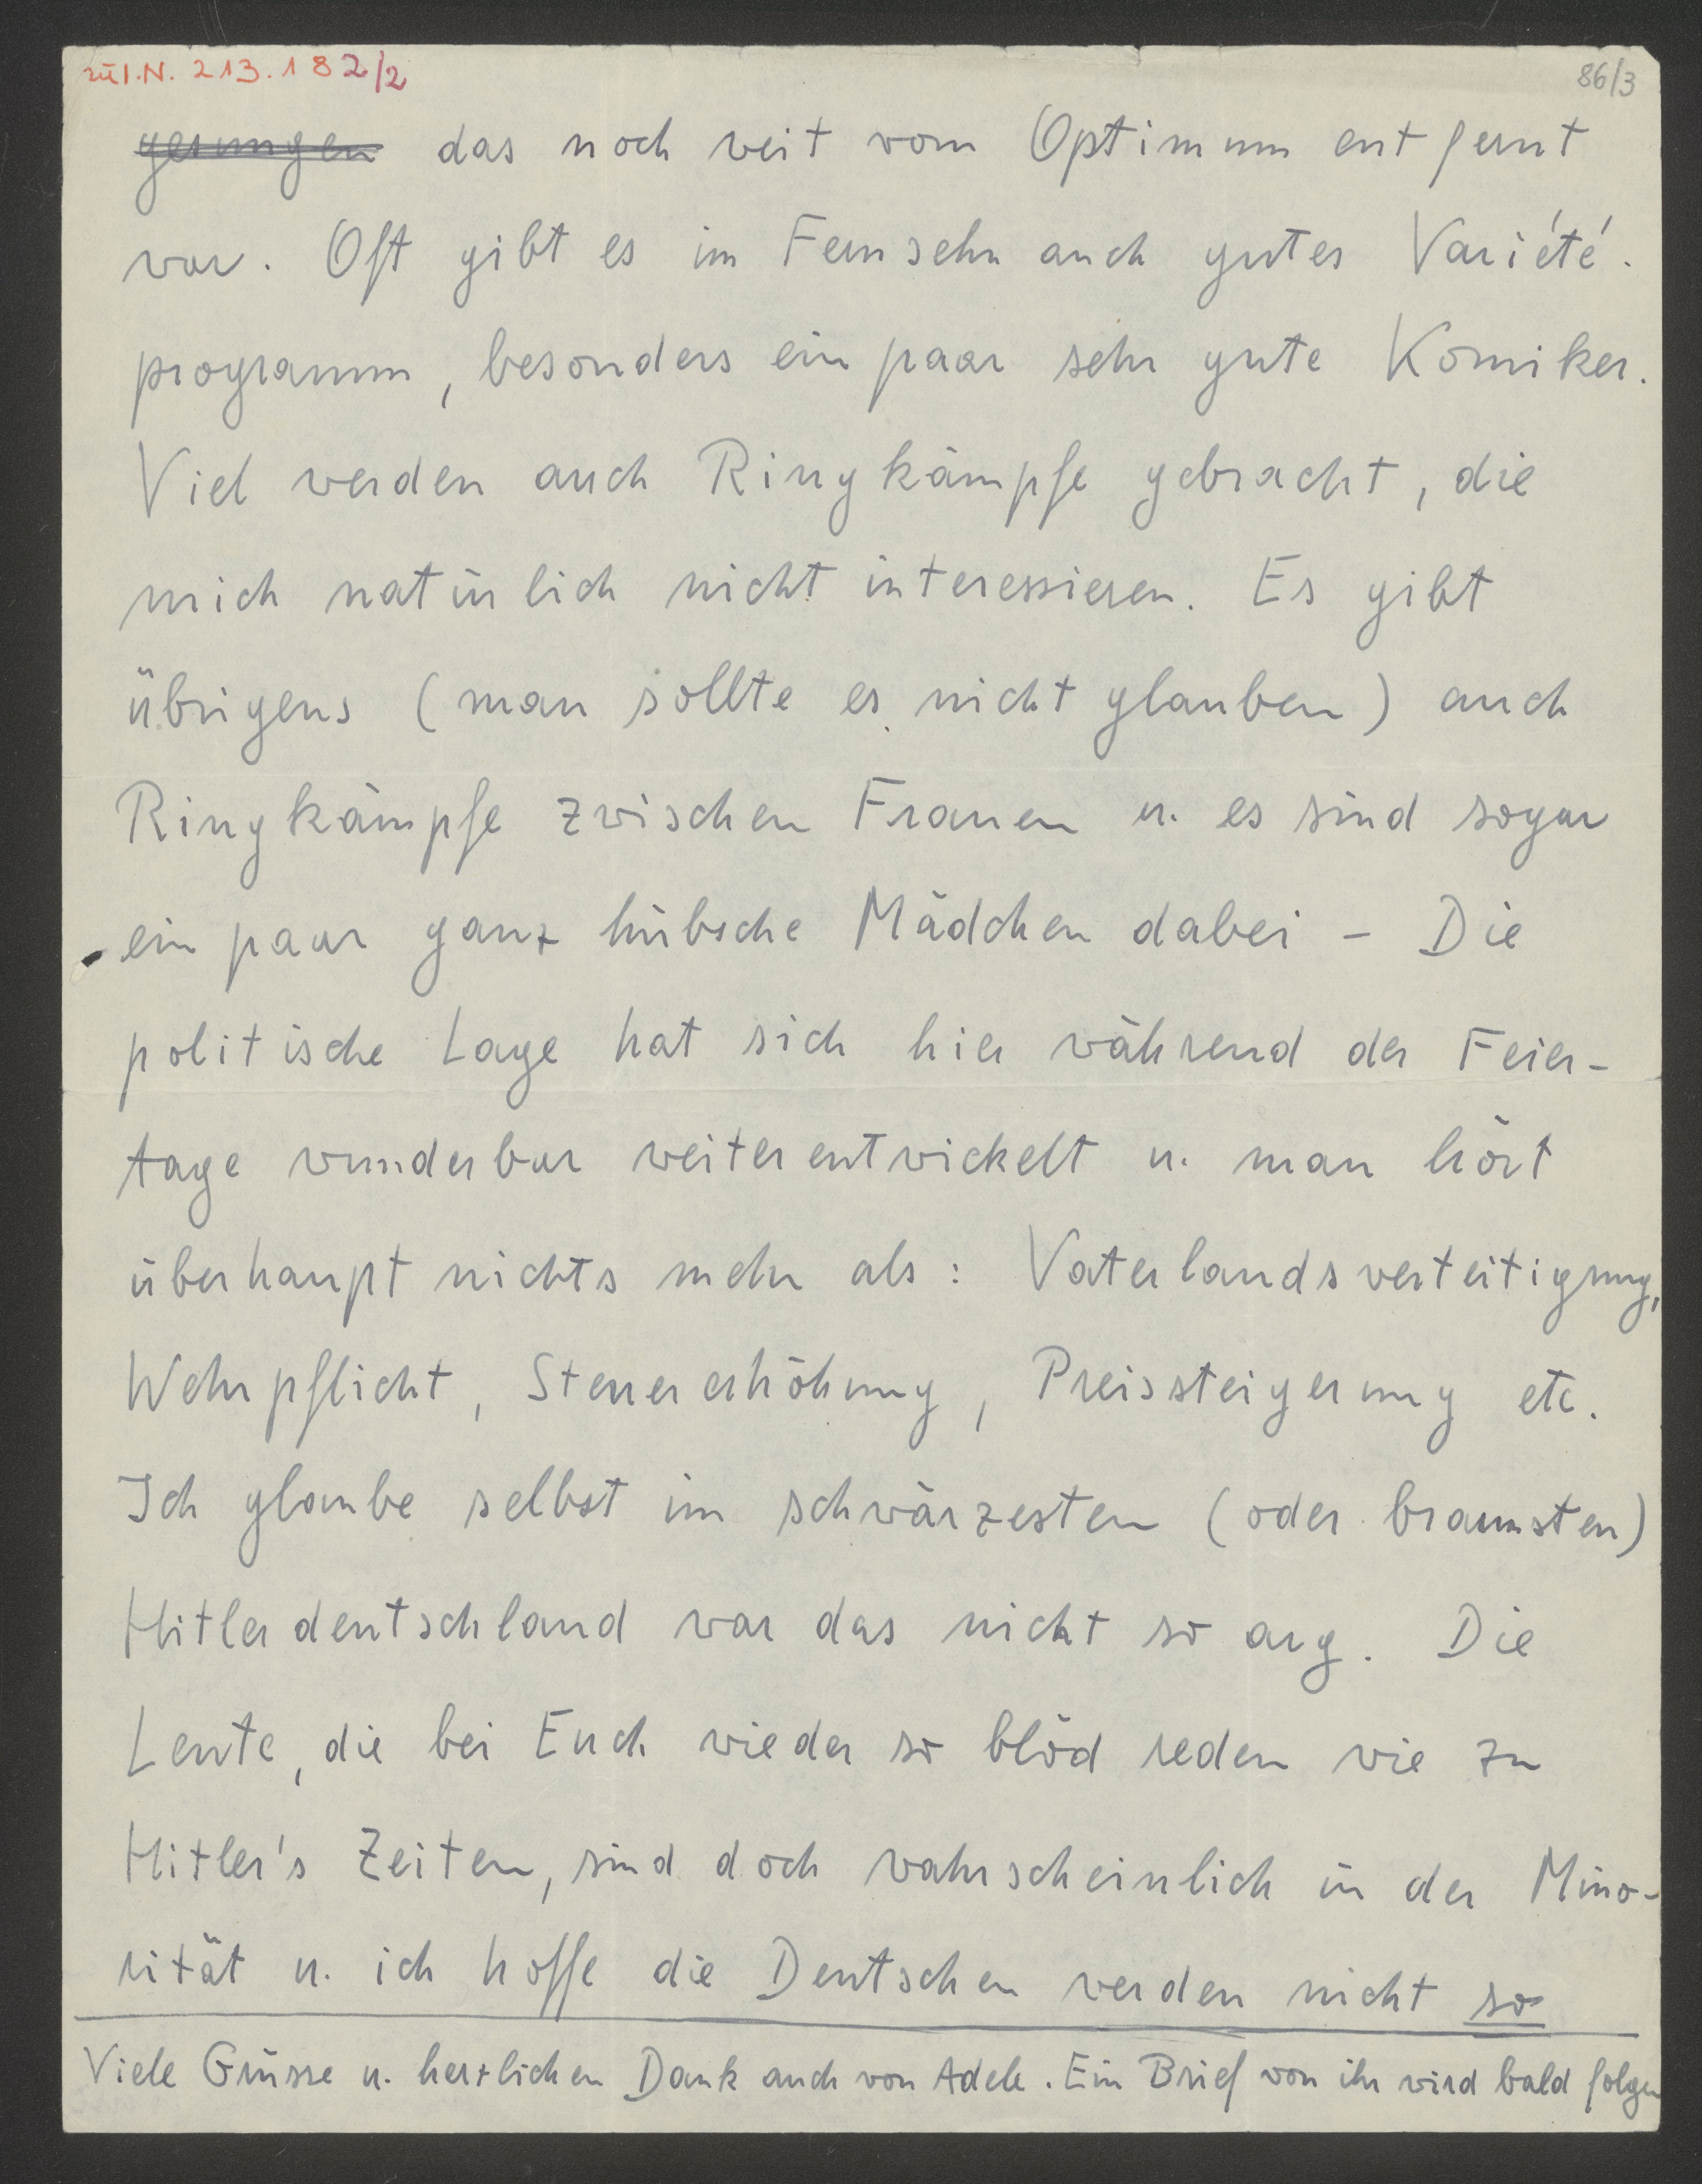 zu I.N. 213.182/2
86/3
gesungen das noch weit vom Optimum entfernt
war. Oft gibt es im Fernsehn auch gutes Variété.
programm, besonders ein paar sehr gute Komiker.
Viel werden auch Ringkämpfe gebracht, die
mich natürlich nicht interessieren. Es gibt
übrigens (man sollte es nicht glauben) auch
Ringkämpfe zwischen Frauen u. es sind sogar
ein paar ganz hübsche Mädchen dabei – Die
politische Lage hat sich hier während der Feier-
tage wunderbar weiterentwickelt u. man hört
überhaupt nichts mehr als: Vaterlandsverteitigung,
Wehrpflicht, Steuererhöhung, Preissteigerung etc.
Ich glaube selbst im schwärzesten (oder braunsten)
Hitlerdeutschland war das nicht so arg. Die
Leute, die bei Euch wieder so blöd reden wie zu
Hitler's Zeiten, sind doch wahrscheinlich in der Mino-
rität u. ich hoffe die Deutschen werden nicht so
Viele Grüsse u. herzlichen Dank auch von Adele. Ein Brief von ihr wird bald folgen